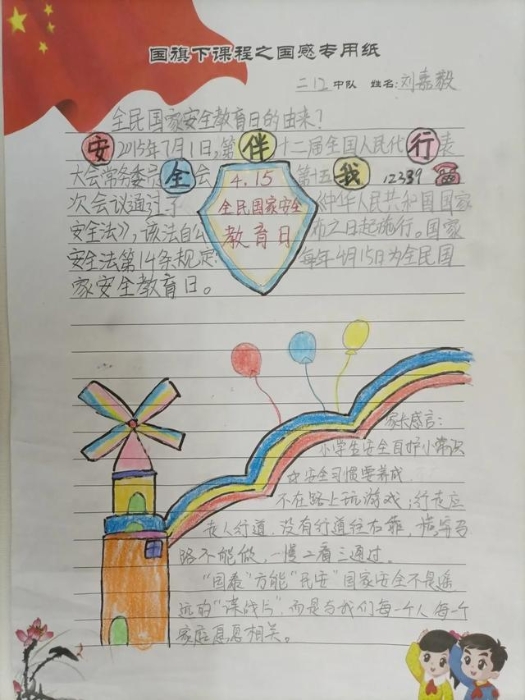 国旗下课程之国感专用纸
二12中队 姓名:刘嘉毅
全民国家安全教育日的由来?
安 2015年7月1日,第 伴 十二届全国人民代 行 表
大会常务委员 全 会 第十五 我 12339
次会议通过了 《中华人民共和国国家
安全法》,该法自公 布之日起施行。国家
安全法第14条规定 每年4月15日为全民国
家安全教育日。
4.15
全民国家安全
教育日
平
安
家长感言:
小学生安全自护小常识
安全习惯要养成
不在路上玩游戏;行走应
走人行道,没有行道往右靠,
路不能做,一慢二看三通过。
“国泰”方能“民安”国家安全不是遥
远的“谍战片”,而是与我们每一个人每一个
家庭息息相关。